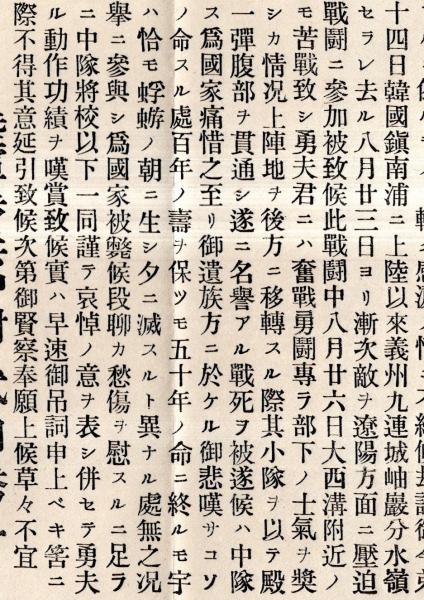 十四日韓國鎭南浦ニ上陸以來義州九連城岫巖分水嶺
セラレ去ル八月廿三日ヨリ漸次敵ヲ遼陽方面ニ壓迫
戰鬪ニ參加被致候此戰鬪中八月廿六日大西溝附近ノ
モ苦戰致シ勇夫君ニハ奮戰勇鬪專ラ部下ノ士氣ヲ奬
シカ情况上陣地ヲ後方ニ移轉スル際其小隊ヲ以テ殿
一彈腹部ヲ貫通シ遂ニ名譽アル戰死ヲ被遂候ハ中隊
ス爲國家痛惜之至リ御遺族方ニ於ケル御悲嘆サコソ
ノ命スル處百年ノ壽ヲ保ツモ五十年ノ命ニ終ルモ宇
ハ恰モ蜉蝣ノ朝ニ生シ夕ニ滅スルト異ナル處無之况
擧ニ參與シ爲國家被斃候段聊カ愁傷ヲ慰スルニ足ラ
ニ中隊將校以下一同謹テ哀悼ノ意ヲ表シ併セテ勇夫
ル動作功績ヲ嘆賞致候實ハ早速御吊詞申上ベキ筈ニ
際不得其意延引致候次第御賢察奉願上候草々不宜